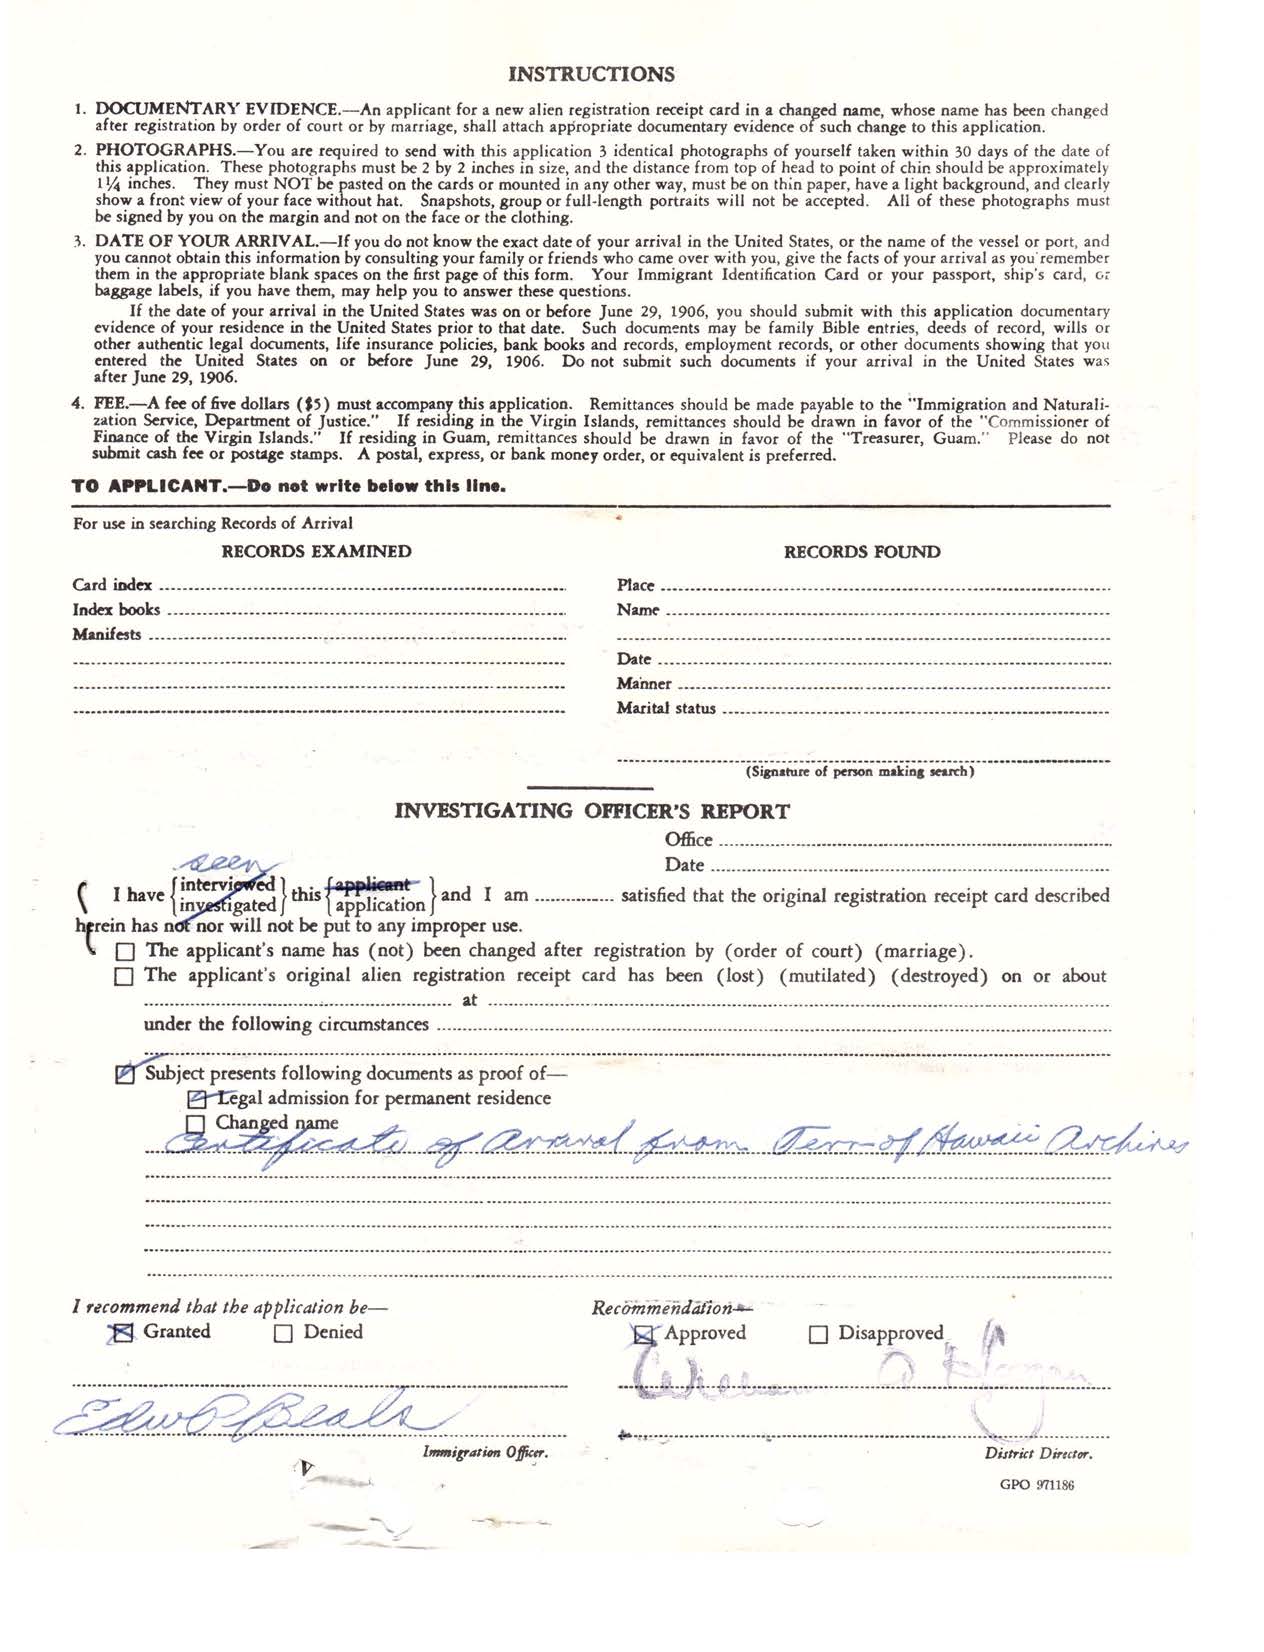 INSTRUCTIONS
1. DOCUMENTARY EVIDENCE.—An applicant for a new alien registration receipt card in a changed name, whose name has been changed
after registration by order of court or by marriage, shall attach appropriate documentary evidence of such change to this application.
2. PHOTOGRAPHS.—You are required to send with this application 3 identical photographs of yourself taken within 30 days of the date of
this application. These photographs must be 2 by 2 inches in size, and the distance from top of head to point of chin should be approximately
1¼ inches. They must NOT be pasted on the cards or mounted in any other way, must be on thin paper, have a light background, and clearly
show a front view of your face without hat. Snapshots, group or full-length portraits will not be accepted. All of these photographs must
be signed by you on the margin and not on the face or the clothing.
3. DATE OF YOUR ARRIVAL.—If you do not know the exact date of your arrival in the United States, or the name of the vessel or port, and
you cannot obtain this information by consulting your family or friends who came over with you, give the facts of your arrival as you remember
them in the appropriate blank spaces on the first page of this form. Your Immigrant Identification Card or your passport, ship's card, or
baggage labels, if you have them, may help you to answer these questions.
If the date of your arrival in the United States was on or before June 29, 1906, you should submit with this application documentary
evidence of your residence in the United States prior to that date. Such documents may be family Bible entries, deeds of record, wills or
other authentic legal documents, life insurance policies, bank books and records, employment records, or other documents showing that you
entered the United States on or before June 29, 1906. Do not submit such documents if your arrival in the United States was
after June 29, 1906.
4. FEE.—A fee of five dollars ($5) must accompany this application. Remittances should be made payable to the "Immigration and Naturali-
zation Service, Department of Justice." If residing in the Virgin Islands, remittances should be drawn in favor of the "Commissioner of
Finance of the Virgin Islands." If residing in Guam, remittances should be drawn in favor of the "Treasurer, Guam." Please do not
submit cash fee or postage stamps. A postal, express, or bank money order, or equivalent is preferred.
TO APPLICANT.—Do not write below this line.
For use in searching Records of Arrival
RECORDS EXAMINED
Card index
Index books
Manifests
RECORDS FOUND
Place
Name
Date
Manner
Marital status
(Signature of person making search)
INVESTIGATING OFFICER'S REPORT
Office
Date
seen
I have {interviewed investigated} this {applicant application} and I am .............. satisfied that the original registration receipt card described
herein has not nor will not be put to any improper use.
The applicant's name has (not) been changed after registration by (order of court) (marriage).
The applicant's original alien registration receipt card has been (lost) (mutilated) (destroyed) on or about
at
under the following circumstances
Subject presents following documents as proof of—
Legal admission for permanent residence
Changed name
Certificate of Arrival from Terr of Hawaii Archives
I recommend that the application be—
Granted Denied
Edw P Beals
Immigration Officer.
Recommendation—
Approved Disapproved
William
District Director.
GPO 971186